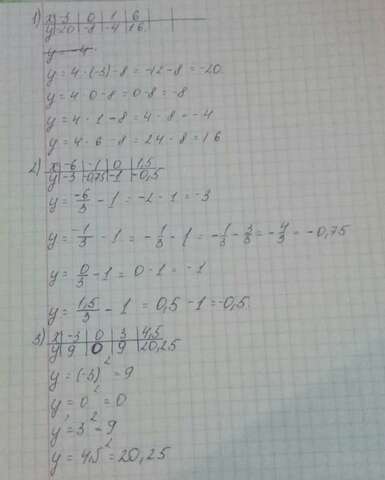 1) x -3 0 1 6
y -20 -8 -4 16
y = 4 · (-3) - 8 = -12 - 8 = -20
y = 4 · 0 - 8 = 0 - 8 = -8
y = 4 · 1 - 8 = 4 - 8 = -4
y = 4 · 6 - 8 = 24 - 8 = 16
2) x -6 -1 0 1,5
y -3 -0,75 -1 -0,5
y = -6/3 - 1 = -2 - 1 = -3
y = -1/3 - 1 = -1/3 - 1 = -1/3 - 3/3 = -4/3 = -0,75
y = 0/3 - 1 = 0 - 1 = -1
y = 1,5/3 - 1 = 0,5 - 1 = -0,5
3) x -3 0 3 4,5
y 9 0 9 20,25
y = (-3)² = 9
y = 0² = 0
y = 3² = 9
y = 4,5² = 20,25